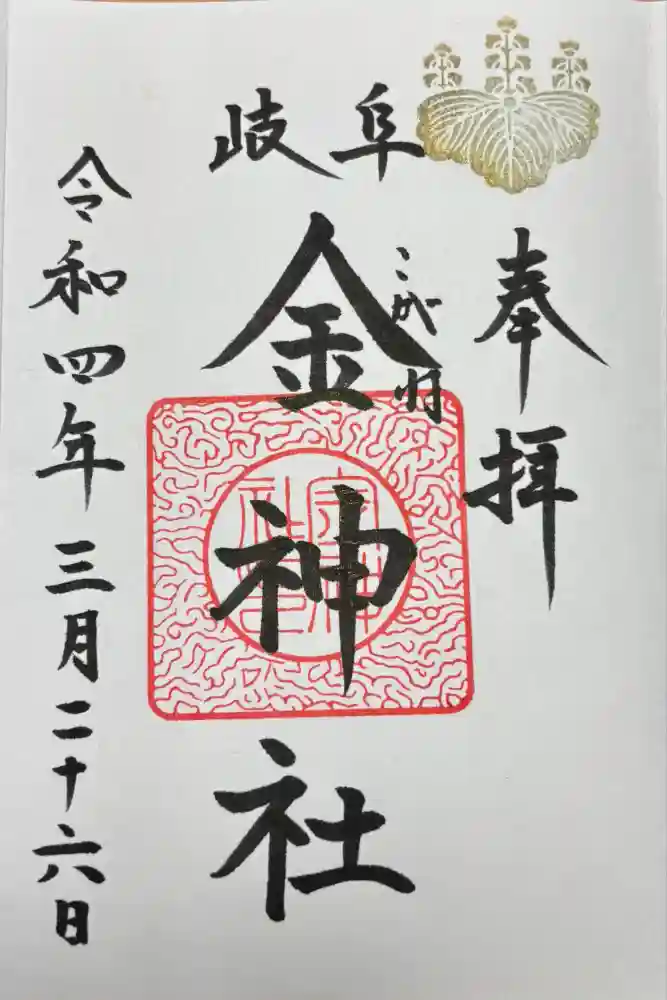 奉拝
岐阜
こがね
金神社
令和四年三月二十六日